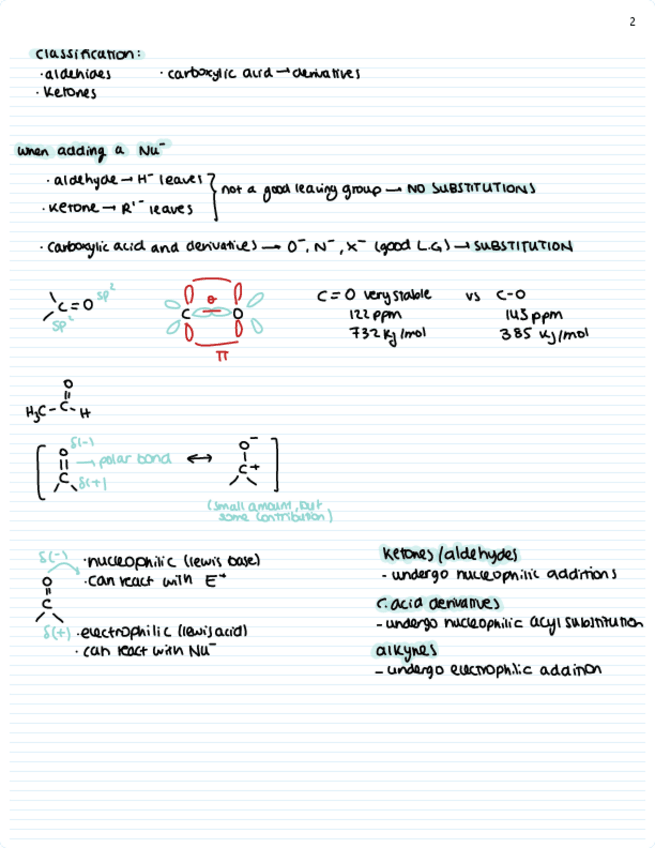 2
classification:
· aldehides · carboxylic acid → derivatives
· Ketones
when adding a Nu⁻
· aldehyde → H⁻ leaves
· Ketone → R'⁻ leaves
not a good leaving group → NO SUBSTITUTIONS
· carboxylic acid and derivatives → O⁻, N⁻, X⁻ (good L.G) → SUBSTITUTION
C=O sp²
sp²
C σ O
π
C=O very stable vs C-O
122 ppm 143 ppm
732 KJ/mol 385 KJ/mol
O
H₃C-C-H
δ(-)
O → polar bond ↔ O⁻
C δ(+) C+
(small amount, but
some contribution)
δ(-) · nucleophilic (lewis base)
· can react with E⁺
O
C
δ(+) · electrophilic (lewis acid)
· can react with Nu⁻
Ketones/aldehydes
- undergo nucleophilic additions
C. acid derivatives
- undergo nucleophilic acyl substitution
alkynes
- undergo electrophilic addition